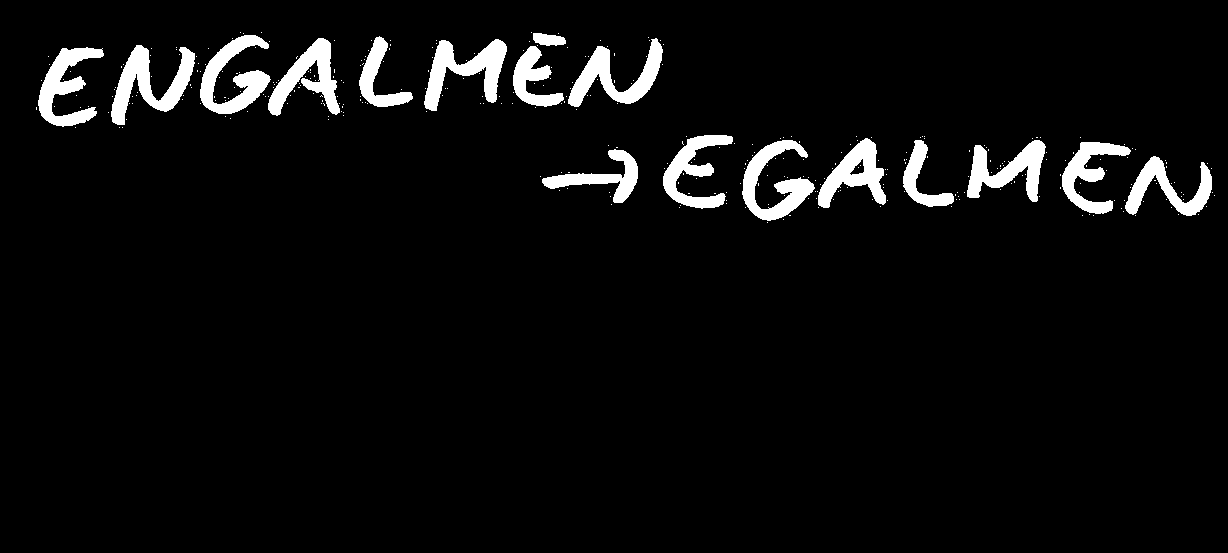 ENGALMĒN
→ EGALMEN